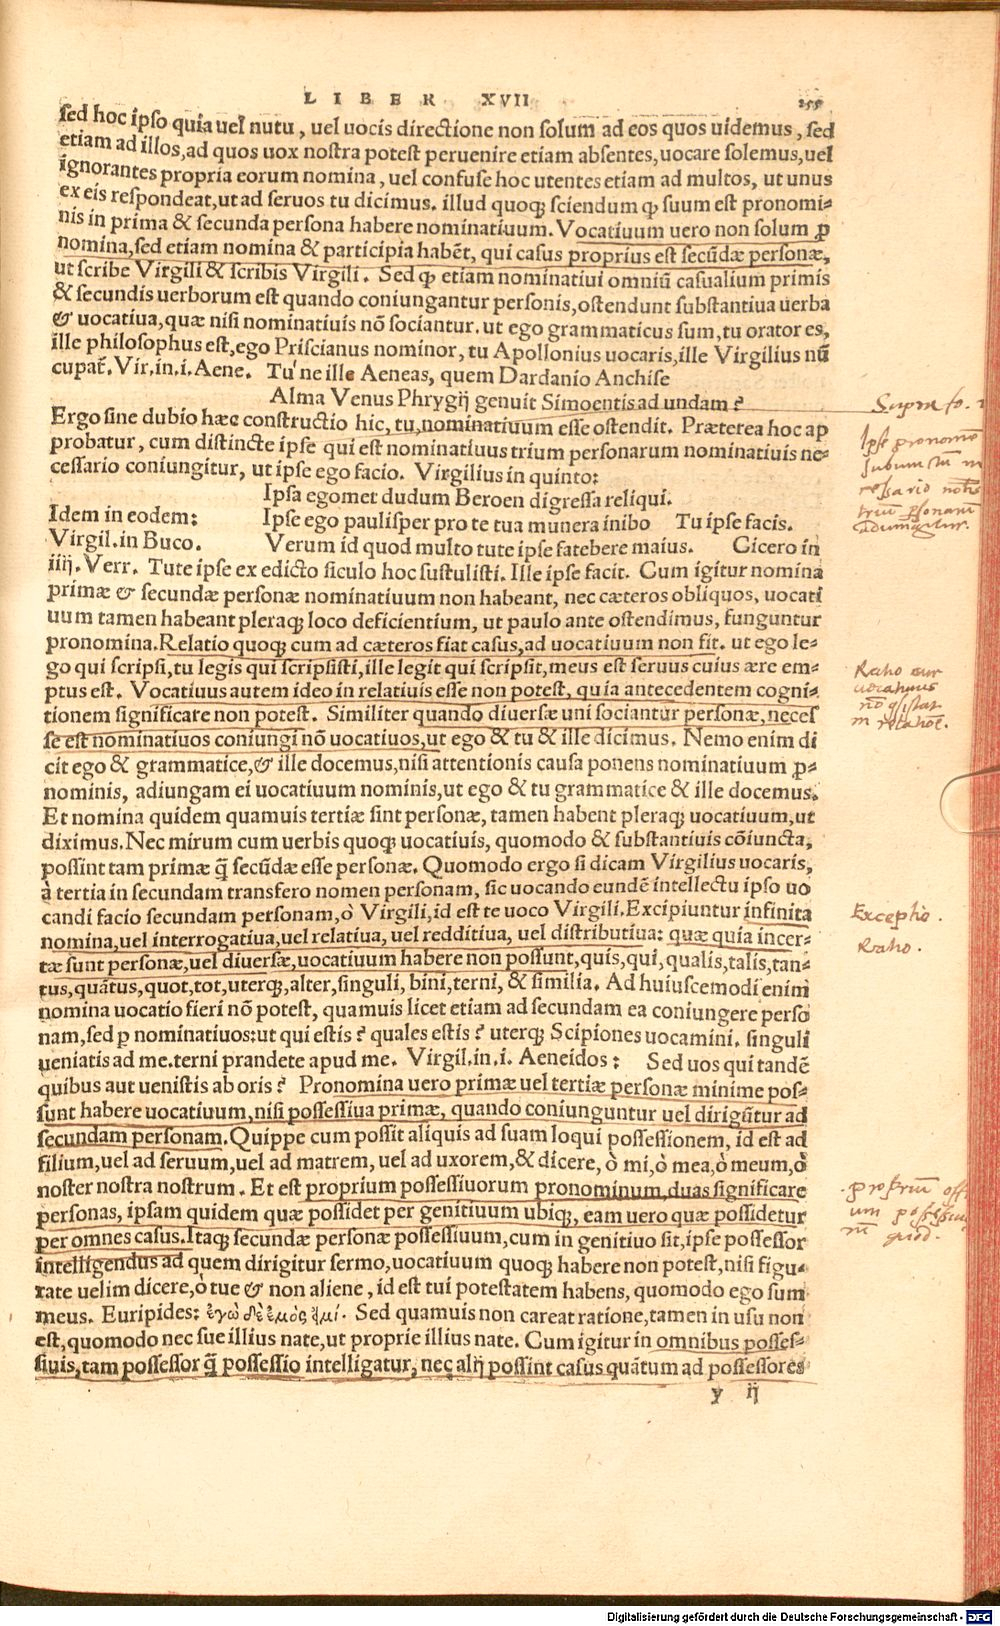 LIBER XVII 255
sed hoc ipso quia uel nutu, uel uocis directione non solum ad eos quos uidemus, sed
etiam ad illos, ad quos uox nostra potest peruenire etiam absentes, uocare solemus, uel
ignorantes propria eorum nomina, uel confuse hoc utentes etiam ad multos, ut unus
ex eis respondeat, ut ad seruos tu dicimus. illud quoqꝫ sciendum ꝙ suum est pronomi-
nis in prima & secunda persona habere nominatiuum. Vocatiuum uero non solum ꝓ
nomina, sed etiam nomina & participia habẽt, qui casus proprius est secũdæ personæ,
ut scribe Virgili & scribis Virgili. Sed ꝙ etiam nominatiui omniũ casualium primis
& secundis uerborum est quando coniungantur personis, ostendunt substantiua uerba
& uocatiua, quæ nisi nominatiuis nõ sociantur. ut ego grammaticus sum, tu orator es,
ille philosophus est, ego Priscianus nominor, tu Apollonius uocaris, ille Virgilius nũ
cupat̃. Vir. in. i. Aene. Tu ne ille Aeneas, quem Dardanio Anchise
Alma Venus Phrygij genuit Simoentis ad undam?
Ergo sine dubio hæc constructio hic, tu, nominatiuum esse ostendit. Præterea hoc ap
probatur, cum distincte ipse qui est nominatiuus trium personarum nominatiuis ne-
cessario coniungitur, ut ipse ego facio. Virgilius in quinto:
Ipsa egomet dudum Beroen digressa reliqui.
Idem in eodem: Ipse ego paulisper pro te tua munera inibo Tu ipse facis.
Virgil. in Buco. Verum id quod multo tute ipse fatebere maius. Cicero in
iiij. Verr. Tute ipse ex edicto siculo hoc sustulisti. Ille ipse facit. Cum igitur nomina
primæ & secundæ personæ nominatiuum non habeant, nec cæteros obliquos, uocati
uum tamen habeant pleraqꝫ loco deficientium, ut paulo ante ostendimus, funguntur
pronomina. Relatio quoqꝫ cum ad cæteros fiat casus, ad uocatiuum non fit. ut ego le-
go qui scripsi, tu legis qui scripsisti, ille legit qui scripsit, meus est seruus cuius ære em-
ptus est. Vocatiuus autem ideo in relatiuis esse non potest, quia antecedentem cogni-
tionem significare non potest. Similiter quando diuersæ uni sociantur personæ, neces
se est nominatiuos coniungi nõ uocatiuos, ut ego & tu & ille dicimus. Nemo enim di
cit ego & grammatice, & ille docemus, nisi attentionis causa ponens nominatiuum ꝓ-
nominis, adiungam ei uocatiuum nominis, ut ego & tu grammatice & ille docemus.
Et nomina quidem quamuis tertiæ sint personæ, tamen habent pleraqꝫ uocatiuum, ut
diximus. Nec mirum cum uerbis quoqꝫ uocatiuis, quomodo & substantiuis cõiuncta,
possint tam primæ q̃ secũdæ esse personæ. Quomodo ergo si dicam Virgilius uocaris,
à tertia in secundam transfero nomen personam, sic uocando eundẽ intellectu ipso uo
candi facio secundam personam, ò Virgili, id est te uoco Virgili. Excipiuntur infinita
nomina, uel interrogatiua, uel relatiua, uel redditiua, uel distributiua: quæ quia incer-
tæ sunt personæ, uel diuersæ, uocatiuum habere non possunt, quis, qui, qualis, talis, tan-
tus, quãtus, quot, tot, uterqꝫ, alter, singuli, bini, terni, & similia. Ad huiuscemodi enim
nomina uocatio fieri nõ potest, quamuis licet etiam ad secundam ea coniungere perso
nam, sed ꝑ nominatiuos: ut qui estis? quales estis? uterqꝫ Scipiones uocamini. singuli
ueniatis ad me. terni prandete apud me. Virgil. in. i. Aeneidos: Sed uos qui tandẽ
quibus aut uenistis ab oris? Pronomina uero primæ uel tertiæ personæ minime pos-
sunt habere uocatiuum, nisi possessiua primæ, quando coniunguntur uel dirigũtur ad
secundam personam. Quippe cum possit aliquis ad suam loqui possessionem, id est ad
filium, uel ad seruum, uel ad matrem, uel ad uxorem, & dicere, ò mi, ò mea, ò meum, ò
noster nostra nostrum. Et est proprium possessiuorum pronominum, duas significare
personas, ipsam quidem quæ possidet per genitiuum ubiqꝫ, eam uero quæ possidetur
per omnes casus. Itaqꝫ secundæ personæ possessiuum, cum in genitiuo sit, ipse possessor
intelligendus ad quem dirigitur sermo, uocatiuum quoqꝫ habere non potest, nisi figu-
rate uelim dicere, ò tue & non aliene, id est tui potestatem habens, quomodo ego sum
meus. Euripides: ἐγὼ δὲ ἐμὸς ἠμί. Sed quamuis non careat ratione, tamen in usu non
est, quomodo nec sue illius nate, ut proprie illius nate. Cum igitur in omnibus posses-
siuis, tam possessor q̃ possessio intelligatur, nec alij possint casus quãtum ad possessores
y ij
Supra fo.
Ipse pronomē
trium ꝑsonarum
Ratio cur
uocatiuus
Exceptio.
Ratio.
proprium